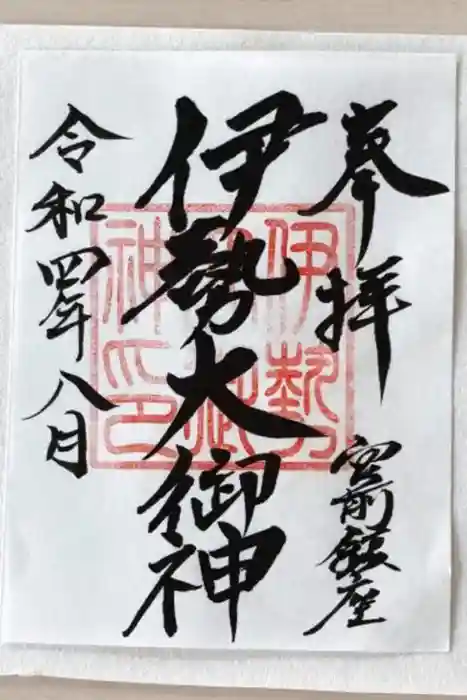 奉拝
宮前鎮座
伊勢大御神
令和四年八月
伊勢
大御
神印